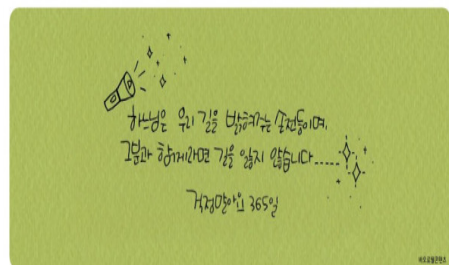 하느님은 우리 길을 밝혀주는 손전등이며,
그분과 함께라면 길을 잃지 않습니다.....
걱정말아요 365일
바오로딸콘텐츠